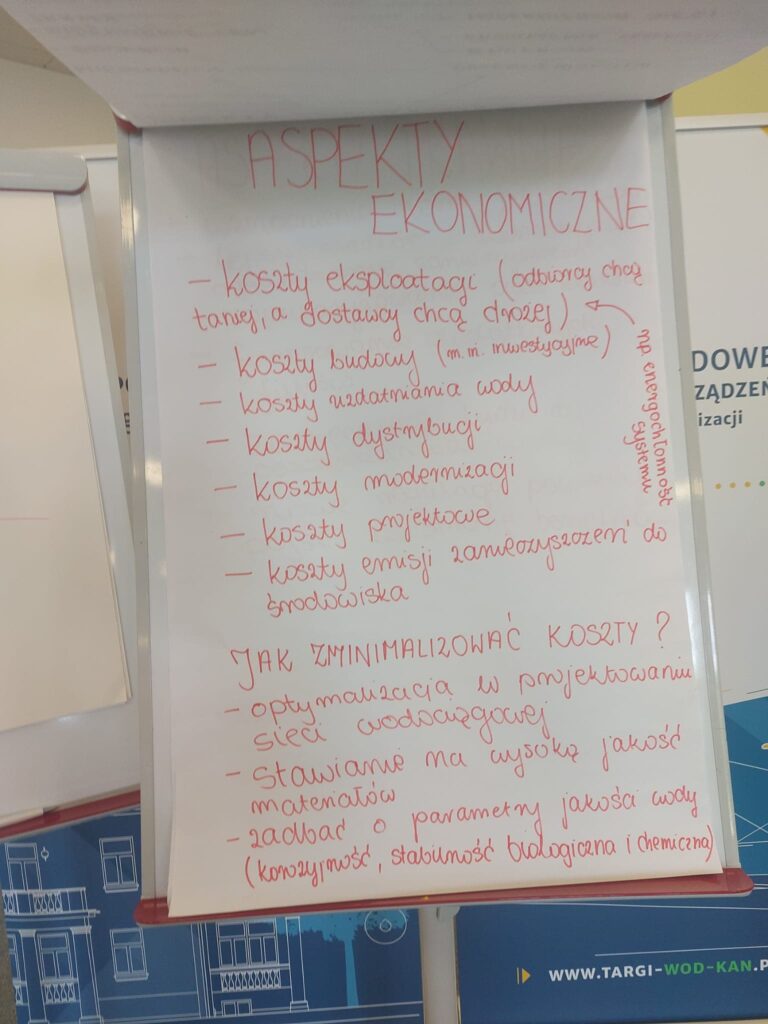 ASPEKTY
EKONOMICZNE
- koszty eksploatacji (odbiorcy chcą
taniej, a dostawcy chcą drożej)
np. energochłonność
systemu
- koszty budowy (m.in. inwestycyjne)
- koszty uzdatniania wody
- koszty dystrybucji
- koszty modernizacji
- koszty projektowe
- koszty emisji zanieczyszczeń do
środowiska
JAK ZMINIMALIZOWAĆ KOSZTY?
- optymalizacja w projektowaniu
sieci wodociągowej
- stawianie na wysoką jakość
materiałów
- zadbać o parametry jakości wody
(korozyjność, stabilność biologiczna i chemiczna)
DOWE
ZĄDZEŃ
izacji
WWW.TARGI-WOD-KAN.P